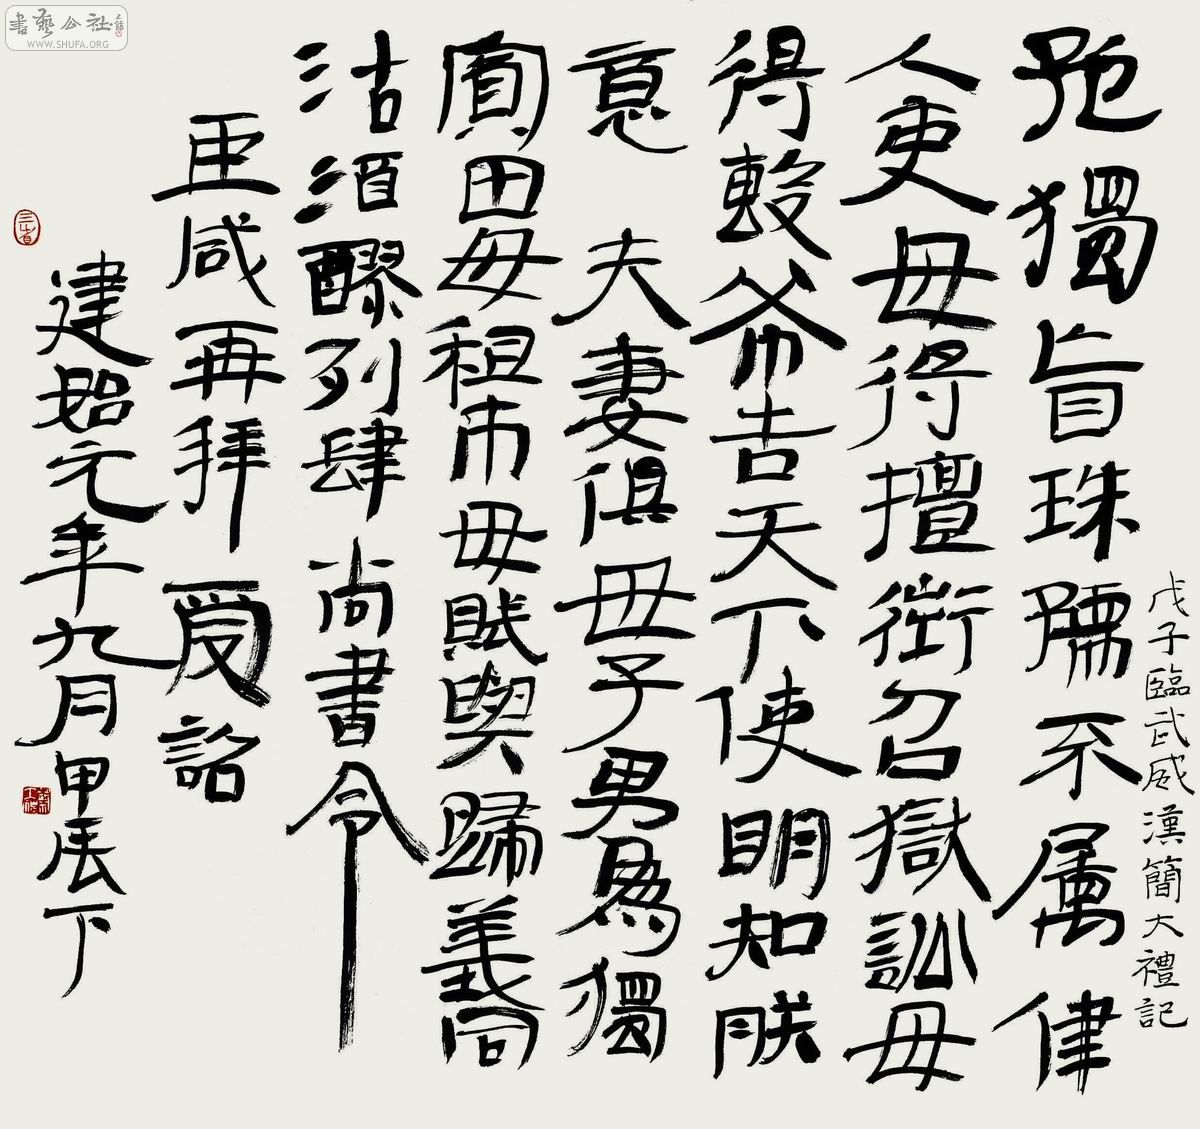 孤獨盲珠孺不属律
人吏毋得擅徵召獄訟毋
得毄布告天下使明知朕
意 夫妻俱毋子男為獨
寡田毋租市毋賦與歸義同
沽酒醪列肆尚書令
臣咸再拜受詔
建始元年九月甲辰下
戊子臨武威漢簡大禮記
三省
書藝公社
WWW.SHUFA.ORG